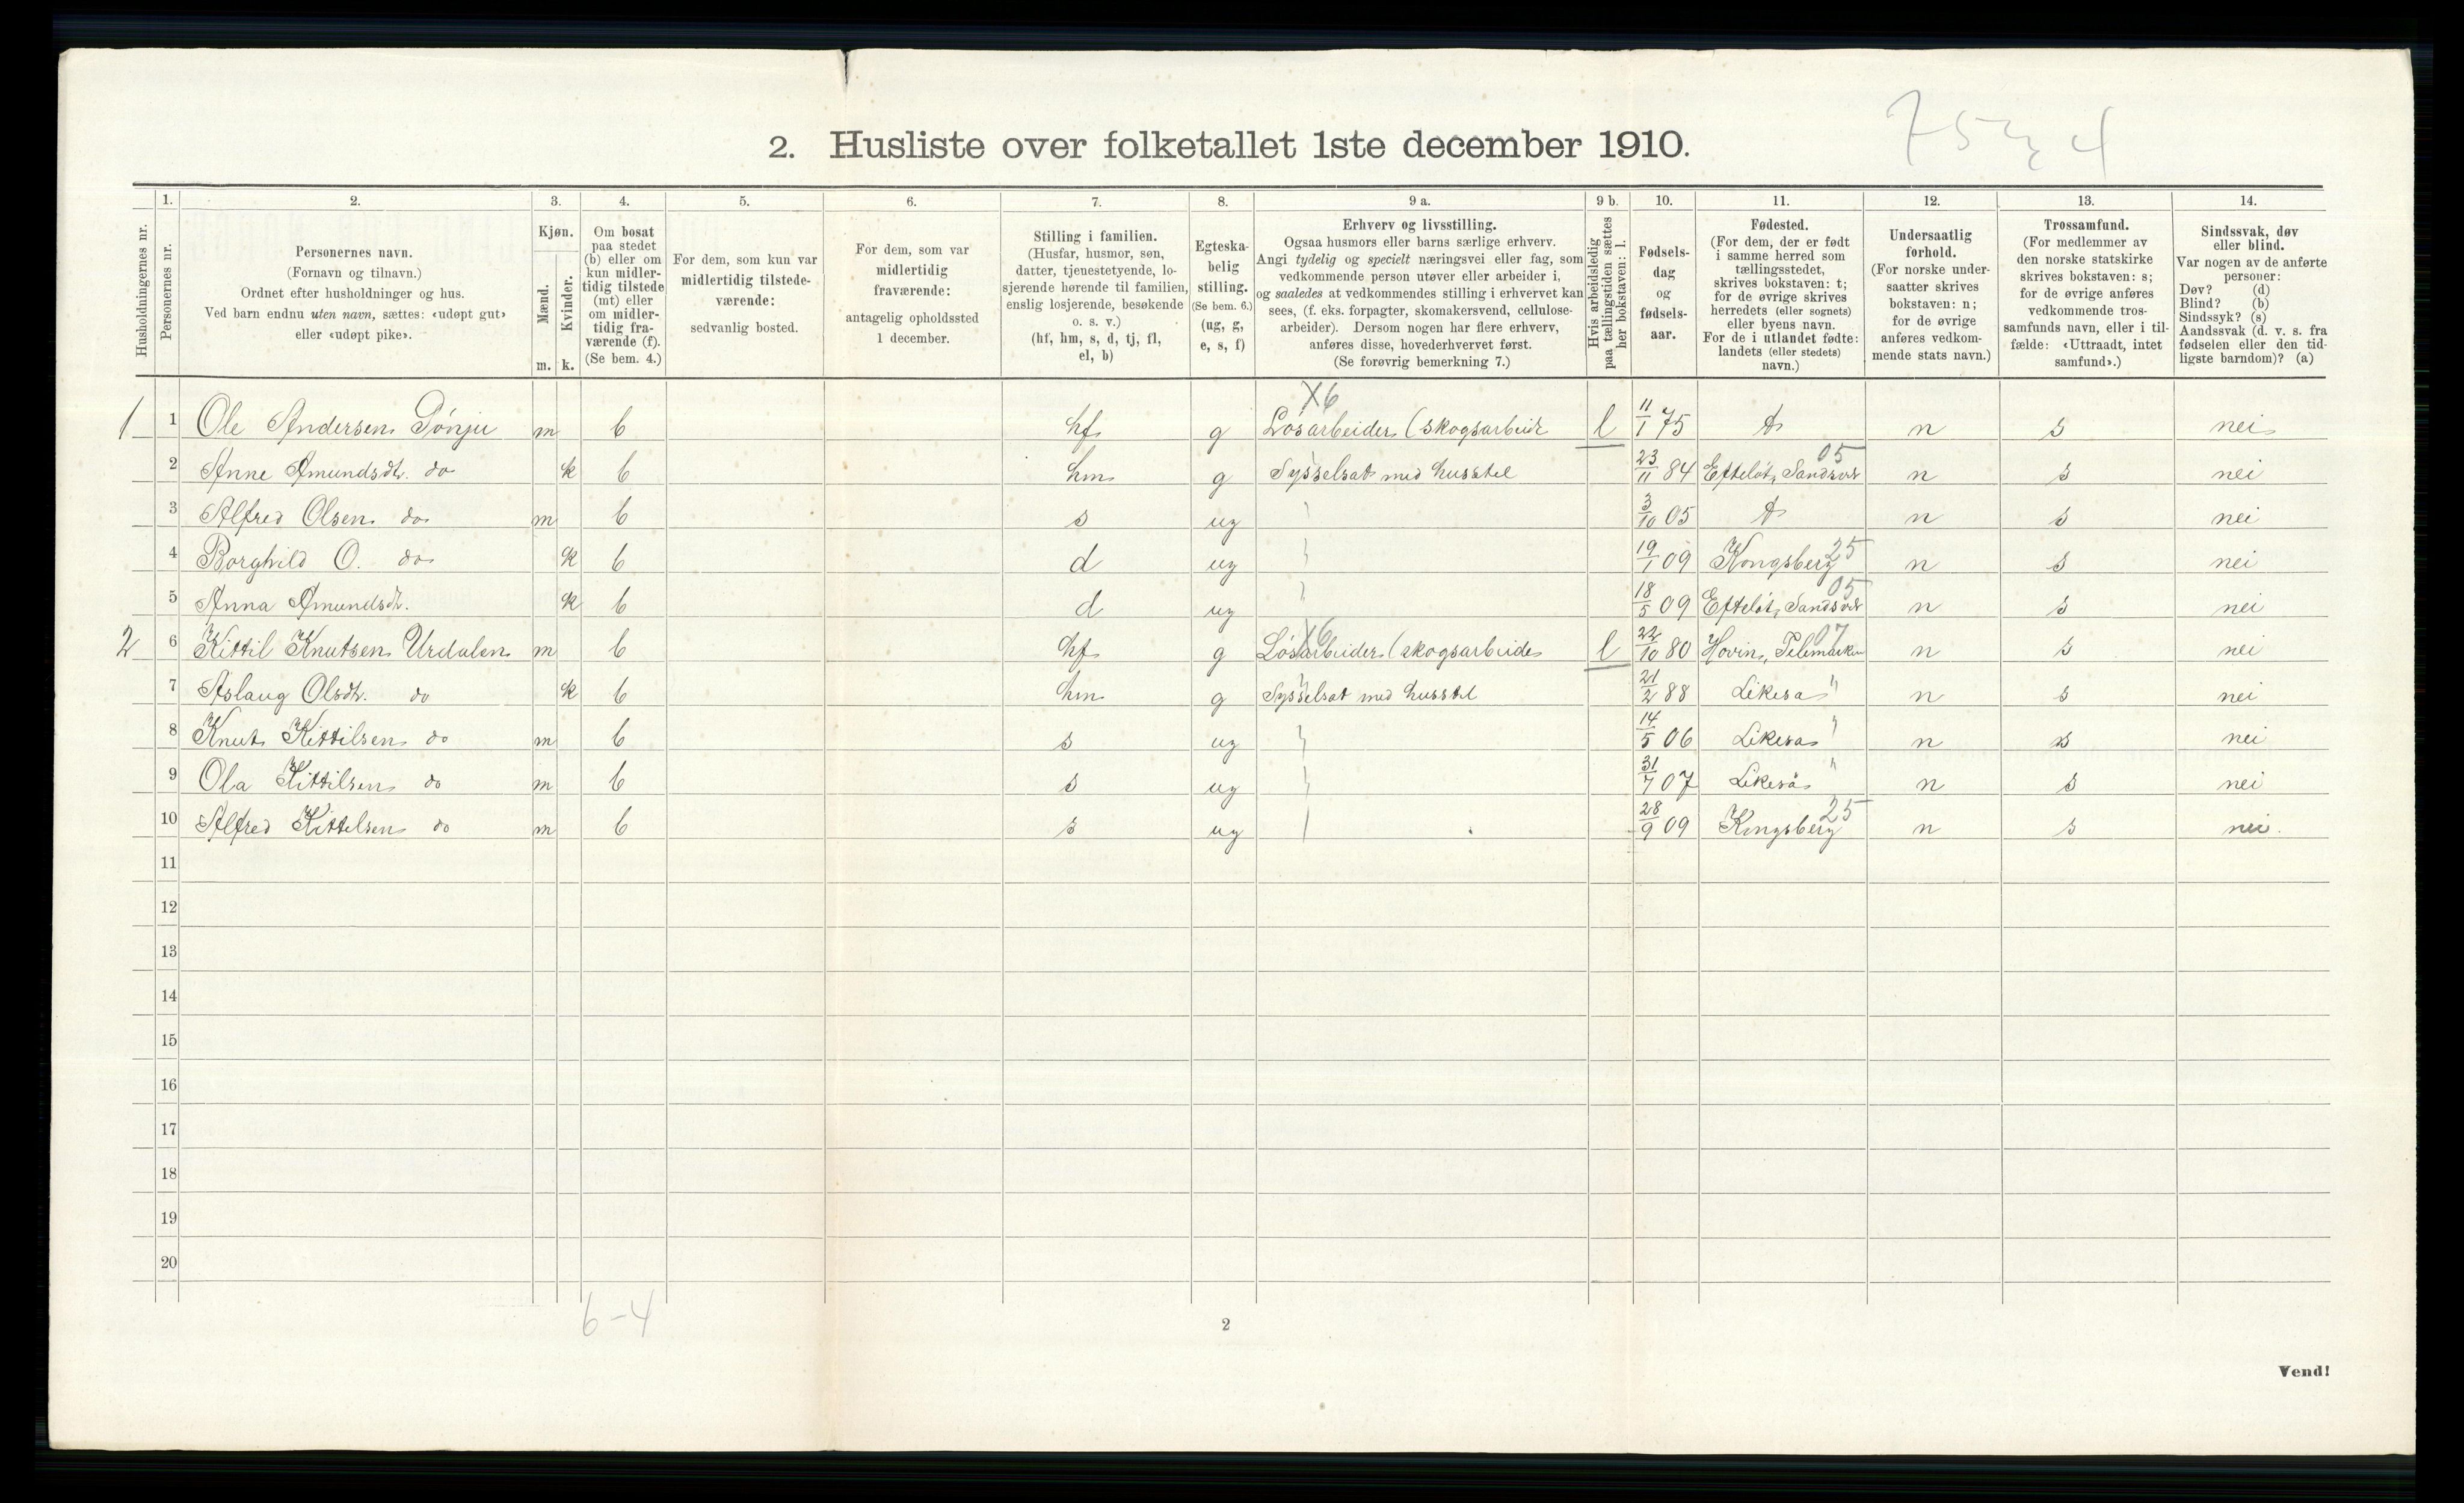 7 5 3 4
2. Husliste over folketallet 1ste december 1910.
Husholdningernes nr.
1.
Personernes nr.
2.
Personernes navn.
(Fornavn og tilnavn.)
Ordnet efter husholdninger og hus.
Ved barn endnu uten navn, sættes: «udøpt gut»
eller «udøpt pike».
3.
Kjøn.
Mænd.
Kvinder.
m. k.
4.
Om bosat
paa stedet
(b) eller om
kun midler-
tidig tilstede
(mt) eller
om midler-
tidig fra-
værende (f).
(Se bem. 4.)
5.
For dem, som kun var
midlertidig tilstede-
værende:
sedvanlig bosted.
6.
For dem, som var
midlertidig
fraværende:
antagelig opholdssted
1 december.
7.
Stilling i familien.
(Husfar, husmor, søn,
datter, tjenestetyende, lo-
sjerende hørende til familien,
enslig losjerende, besøkende
o. s. v.)
(hf, hm, s, d, tj, fl,
el, b)
8.
Egteska-
belig
stilling.
(Se bem. 6.)
(ug, g,
e, s, f)
9 a.
Erhverv og livsstilling.
Ogsaa husmors eller barns særlige erhverv.
Angi tydelig og specielt næringsvei eller fag, som
vedkommende person utøver eller arbeider i,
og saaledes at vedkommendes stilling i erhvervet kan
sees, (f. eks. forpagter, skomakersvend, cellulose-
arbeider). Dersom nogen har flere erhverv,
anføres disse, hovederhvervet først.
(Se forøvrig bemerkning 7.)
9 b.
Hvis arbeidsledig
paa tællingstiden sættes
her bokstaven: l.
10.
Fødsels-
dag
og
fødsels-
aar.
11.
Fødested.
(For dem, der er født
i samme herred som
tællingsstedet,
skrives bokstaven: t;
for de øvrige skrives
herredets (eller sognets)
eller byens navn.
For de i utlandet fødte:
landets (eller stedets)
navn.)
12.
Undersaatlig
forhold.
(For norske under-
saatter skrives
bokstaven: n;
for de øvrige
anføres vedkom-
mende stats navn.)
13.
Trossamfund.
(For medlemmer av
den norske statskirke
skrives bokstaven: s;
for de øvrige anføres
vedkommende tros-
samfunds navn, eller i til-
fælde: «Uttraadt, intet
samfund».)
14.
Sindssvak, døv
eller blind.
Var nogen av de anførte
personer:
Døv? (d)
Blind? (b)
Sindssyk? (s)
Aandssvak (d. v. s. fra
fødselen eller den tid-
ligste barndom)? (a)
X6
1 1 Ole Andersen Pønju m b hf g Løsarbeider (skogsarbeide l 11/1 75 t n s nei
2 Anne Amundsdt. do k b hm g Sysselsat med husstel 23/11 84 Efteløt, Sandsvr 05 n s nei
3 Alfred Olsen do m b s ug 3/10 05 t n s nei
4 Borghild O. do k b d ug 19/1 09 Kongsberg 25 n s nei
5 Anna Amundsdt. k b d ug 18/5 09 Efteløt, Sandsvr 05 n s nei
2 6 Kittil Knutsen Urdalen m b hf g X6 Løsarbeider (skogsarbeide l 22/10 80 Hovin, Telemarken 07 n s nei
7 Aslaug Olsdt. do k b hm g Sysselsat med husstel 21/2 88 Likesa " n s nei
8 Knut Kittilsen do m b s ug 14/5 06 Likesa " n s nei
9 Ola Kittilsen do m b s ug 31/7 07 Likesa " n s nei
10 Alfred Kittelsen do m b s ug 28/9 09 Kongsberg 25 n s nei.
11
12
13
14
15
16
17
18
19
20
6-4
2
Vend!